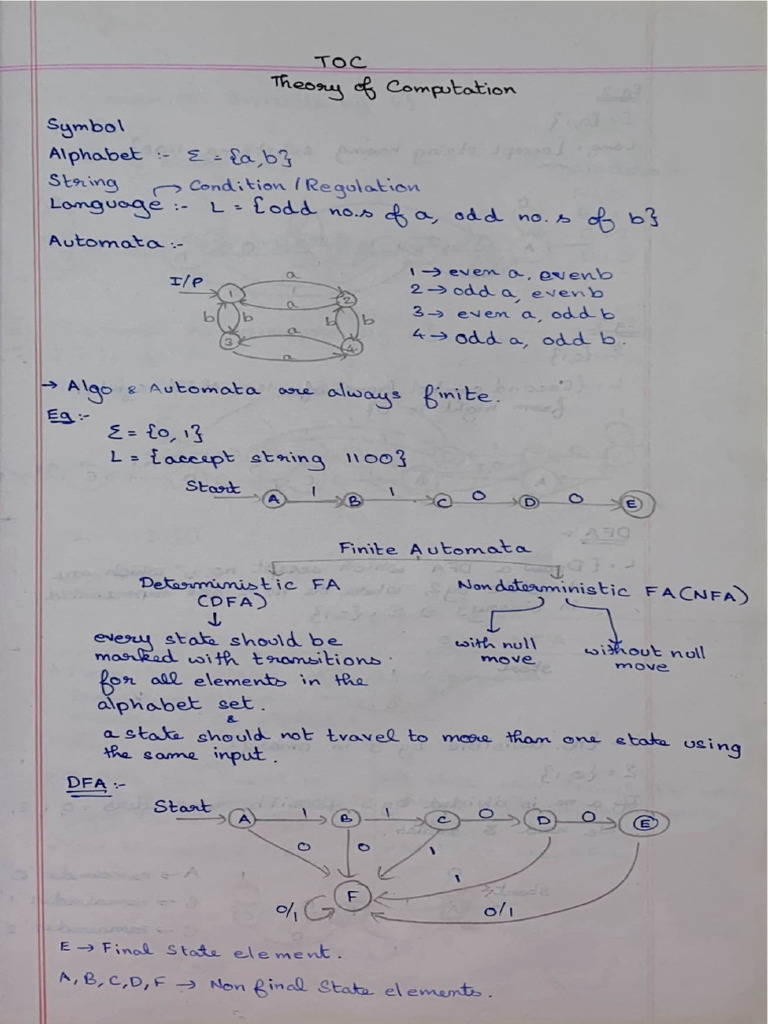 TOC
Theory of Computation
Symbol
Alphabet :- Σ = {a,b}
String → Condition / Regulation
Language :- L = {odd no.s of a, odd no.s of b}
Automata :-
I/P 1 a 2 a b b b b 3 a 4 a
1 → even a, even b
2 → odd a, even b
3 → even a, odd b
4 → odd a, odd b.
→ Algo & Automata are always finite.
Eg :-
Σ = {0, 1}
L = {accept string 1100}
Start A 1 B 1 C 0 D 0 E
Finite Automata
Deterministic FA
(DFA)
↓
every state should be
marked with transitions
for all elements in the
alphabet set.
&
a state should not travel to more than one state using
the same input.
Nondeterministic FA(NFA)
with null
move
without null
move
DFA :-
Start A 1 B 1 C 0 D 0 E
0 0 1 1
F
0/1 0/1
E → Final State element.
A, B, C, D, F → Non final State elements.